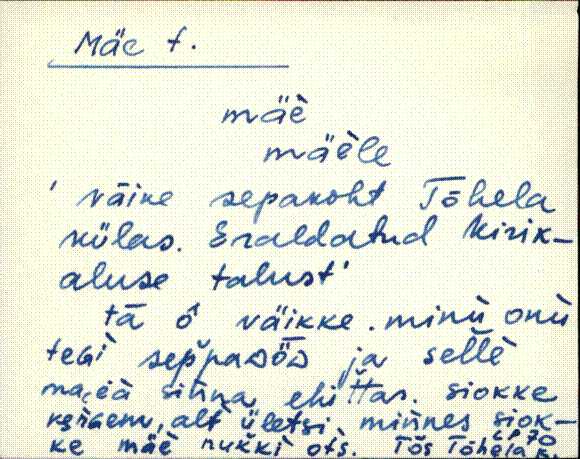 Mäe t.
mäè
mäèle
' väike sepakoht Tõhela
külas. Eraldatud Kirik-
aluse talust'
tä ô väikke. minù onù
tegì ja sellè
sinna, ehittas. siokke
alt ületsì minnes siok-
ke mäè nukkì ots. Tõs Tõhela k.